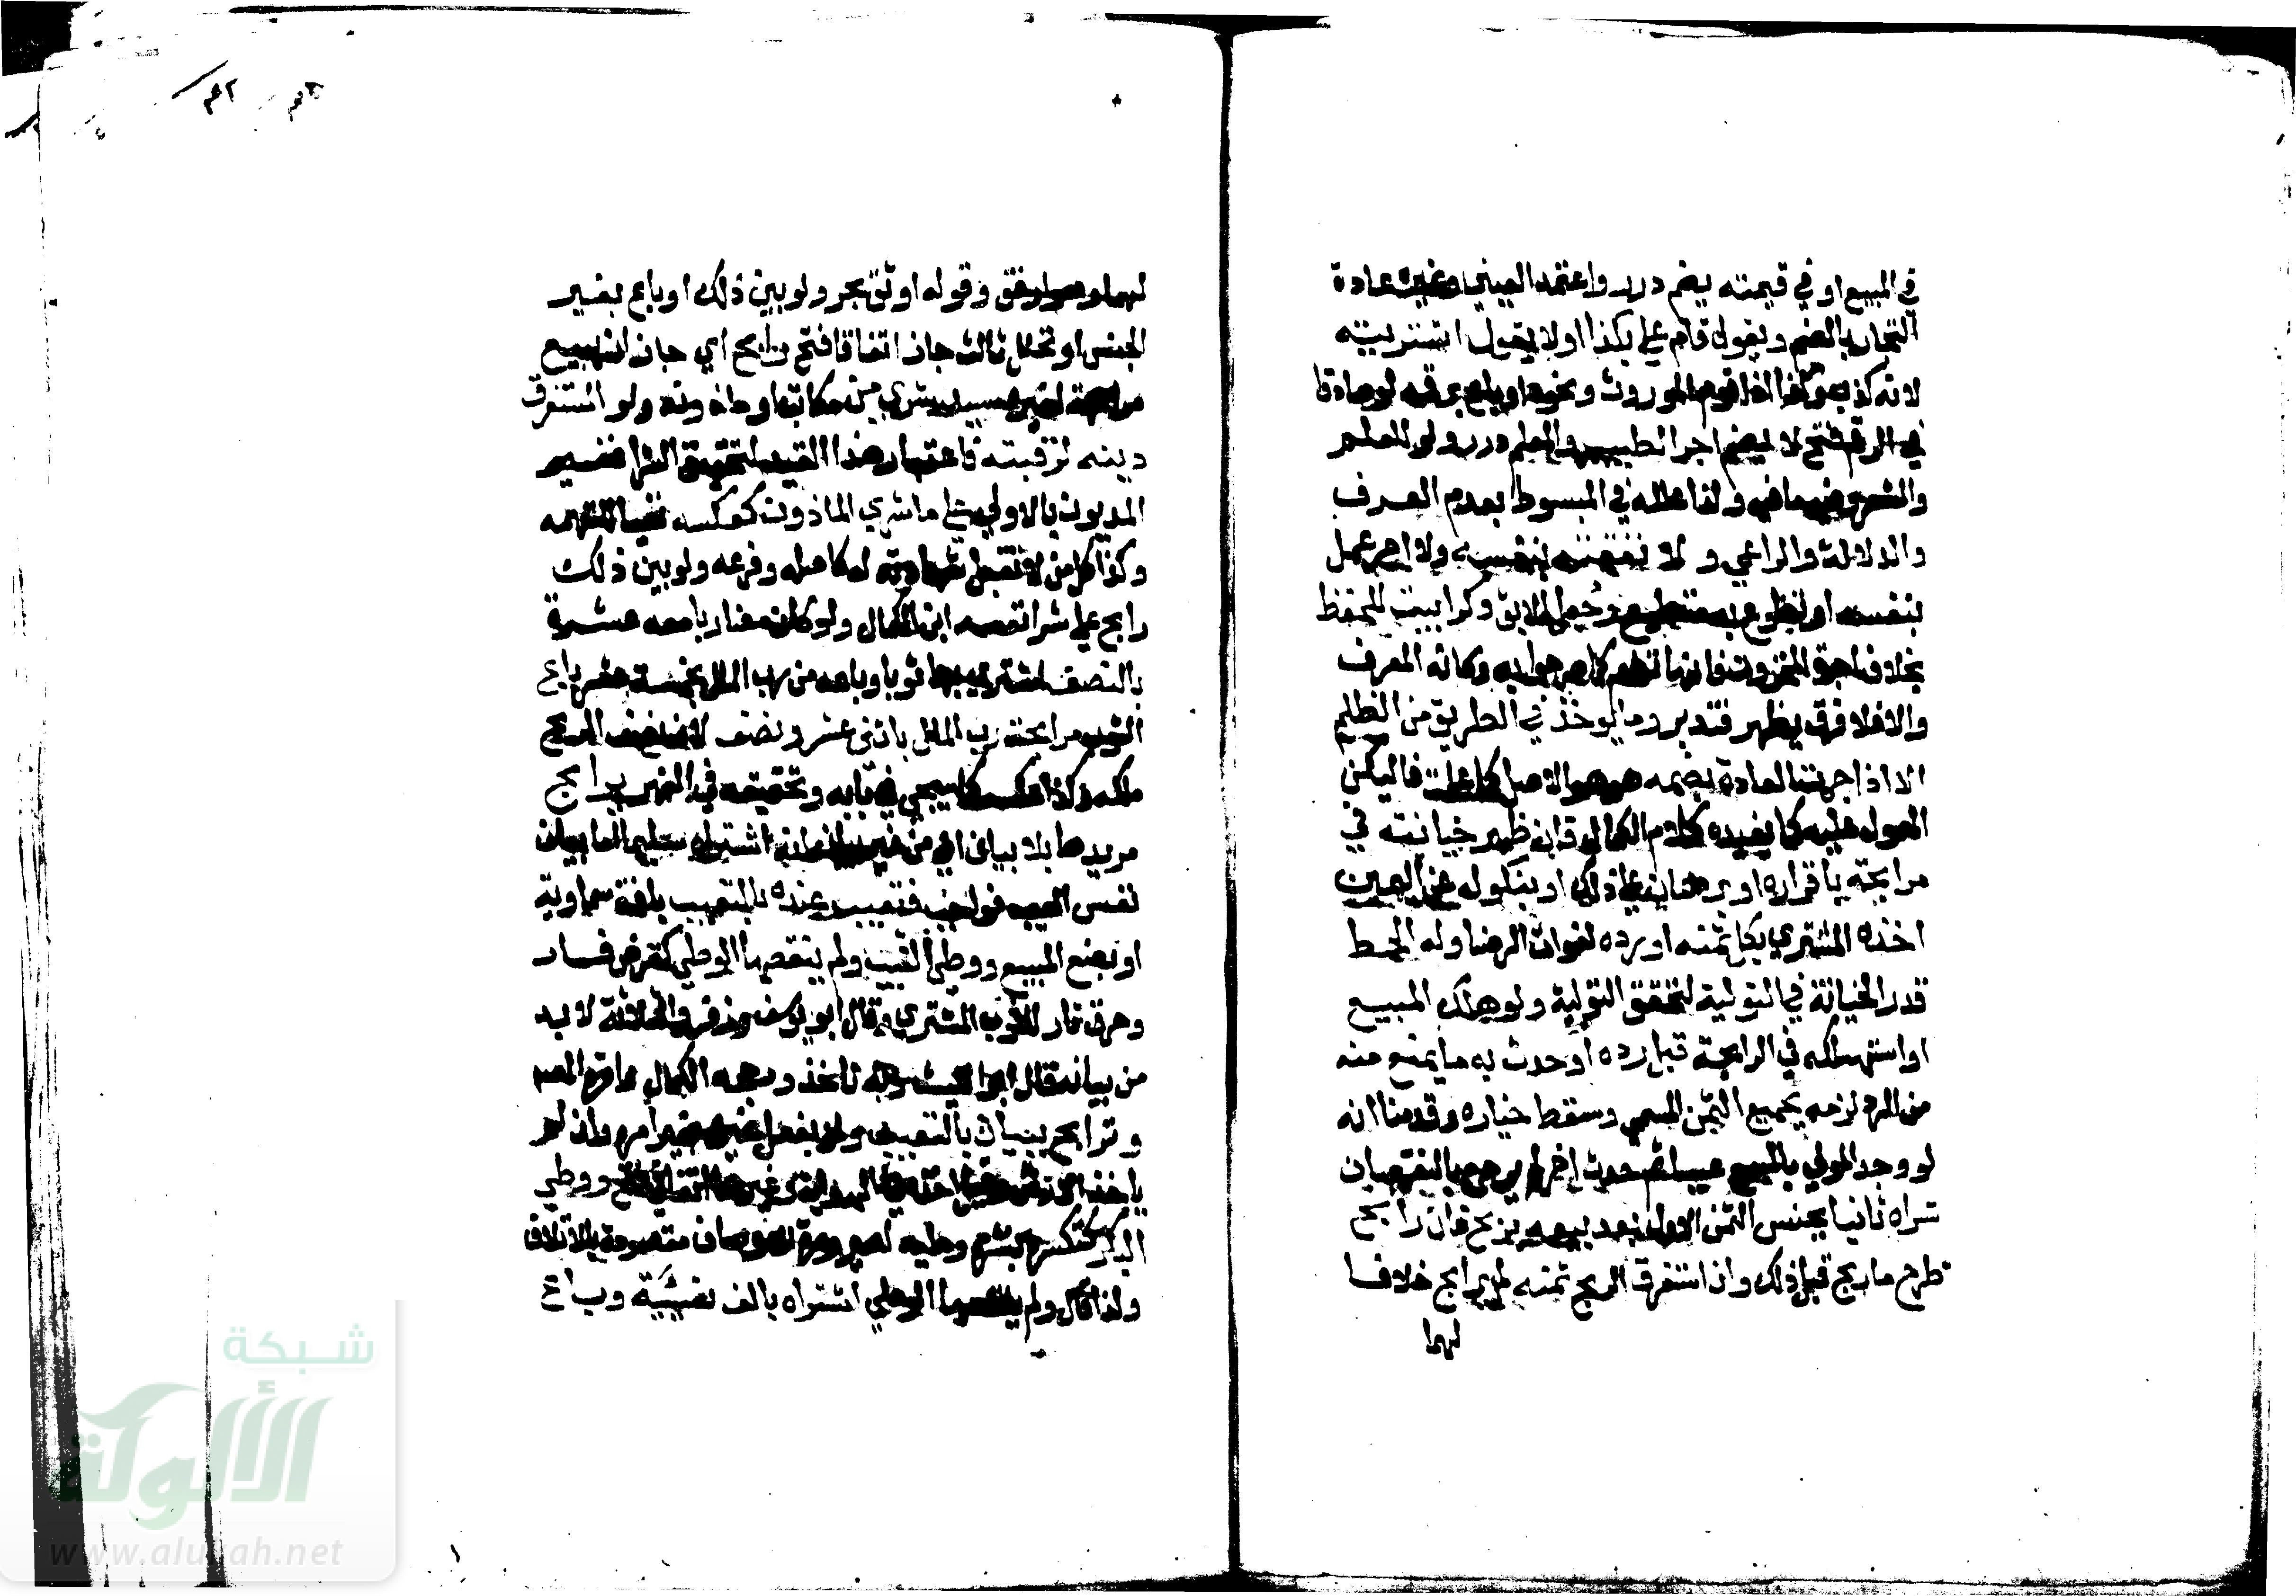 في المبيع او في قيمته يضم درر واعتمد العيني وغيره عادة
التجار بالضم ويقول قام علي بكذا ولا يقول اشتريته
لانه كذب وكذا اذا قوم الموروث ونحوه او باع برقمه لو صادقا
في الرقم فتح لا يضم اجر الطبيب والمعلم درر ولو للعلم
والشعر وفيه ما فيه ولذا علله في المبسوط بعدم العرف
والدلالة والراعي و لا نفقته لنفسه ولا اجر عمل
بنفسه او تطوع به متطوع وجعل الابق وكرا بيت الحفظ
بخلاف اجرة المخزن فانها تضم كما صرحوا به وكانه للعرف
والا فلا فرق يظهر فتدبر وما يؤخذ في الطريق من الظلم
الا اذا جرت العادة بضمه هو الاصل كما علمت فاليكن
المعول عليه كما يفيده كلام الكمال فان ظهر خيانته في
مرابحة باقراره او برهان على ذلك او بنكوله عن اليمين
اخذه المشتري بكل ثمنه او رده لفوات الرضا وله الحط
قدر الخيانة في التولية لتحقق التولية ولو هلك المبيع
او استهلكه في المرابحة قبل رده او حدث به ما يمنع منه
من الرد لزمه بجميع الثمن المسمى وسقط خياره وقدمنا انه
لو وجد المولي بالمبيع عيبا ثم حدث اخر لم يرجع بالنقصان
شراه ثانيا بجنس الثمن الاول بعد بيعه بربح فان رابح
طرح ما ربح قبل ذلك وان استغرق الربح ثمنه لم يرابح خلافا
لهما
لهما وهو ارفق وقوله اوثق بحر ولو بين ذلك او باع بغير
الجنس او تخلل ثالث جاز اتفاقا فتح رابح اي جاز ان يبيع
مرابحة لغيره سيد شري من مكاتبه او ماذونه ولو المستغرق
دينه لرقبته فاعتبار هذا القيد لتحقيق الشرا فغير
المديون بالاولى على ما شرى الماذون كعكسه نفيا للتهمة
وكذا كل من لا تقبل شهادته له كاصله وفرعه ولو بين ذلك
رابح على شرا نفسه ابن الكمال ولو كان مضاربا معه عشرة
بالنصف اشترى بها ثوبا وباعه من رب المال بخمسة عشر باع
الثوب مرابحة رب المال باثنى عشر ونصف لان نصف الربح
ملكه وكذا عكسه كما سيجي في بابه وتحقيقه في النهر يرابح
مريدها بلا بيان اي من غير بيان انه اشتراه سليما اما بيان
نفس العيب فواجب فتعيب عنده بالتعيب بافة سماوية
او بصنع المبيع ووطئ الثيب ولم ينقصها الوطي كقرض فار
وحرق نار للثوب المشتري وقال ابو يوسف وزفر والثلاثة لا بد
من بيانه قال ابو الليث وبه ناخذ ورجحه الكمال واقره المصـ
وترابح ببيان بالتعييب ولو بفعل غيره بغير امره وان لم
ياخذ الارش
ووطي
البكر كتكسره بنشره وطيه لصيرورة الاوصاف مقصودة بالاتلاف
ولذا قال ولم ينقصها الوطي اشتراه بالف نسيئة وباع
شبكة
الألوكة
www.alukah.net